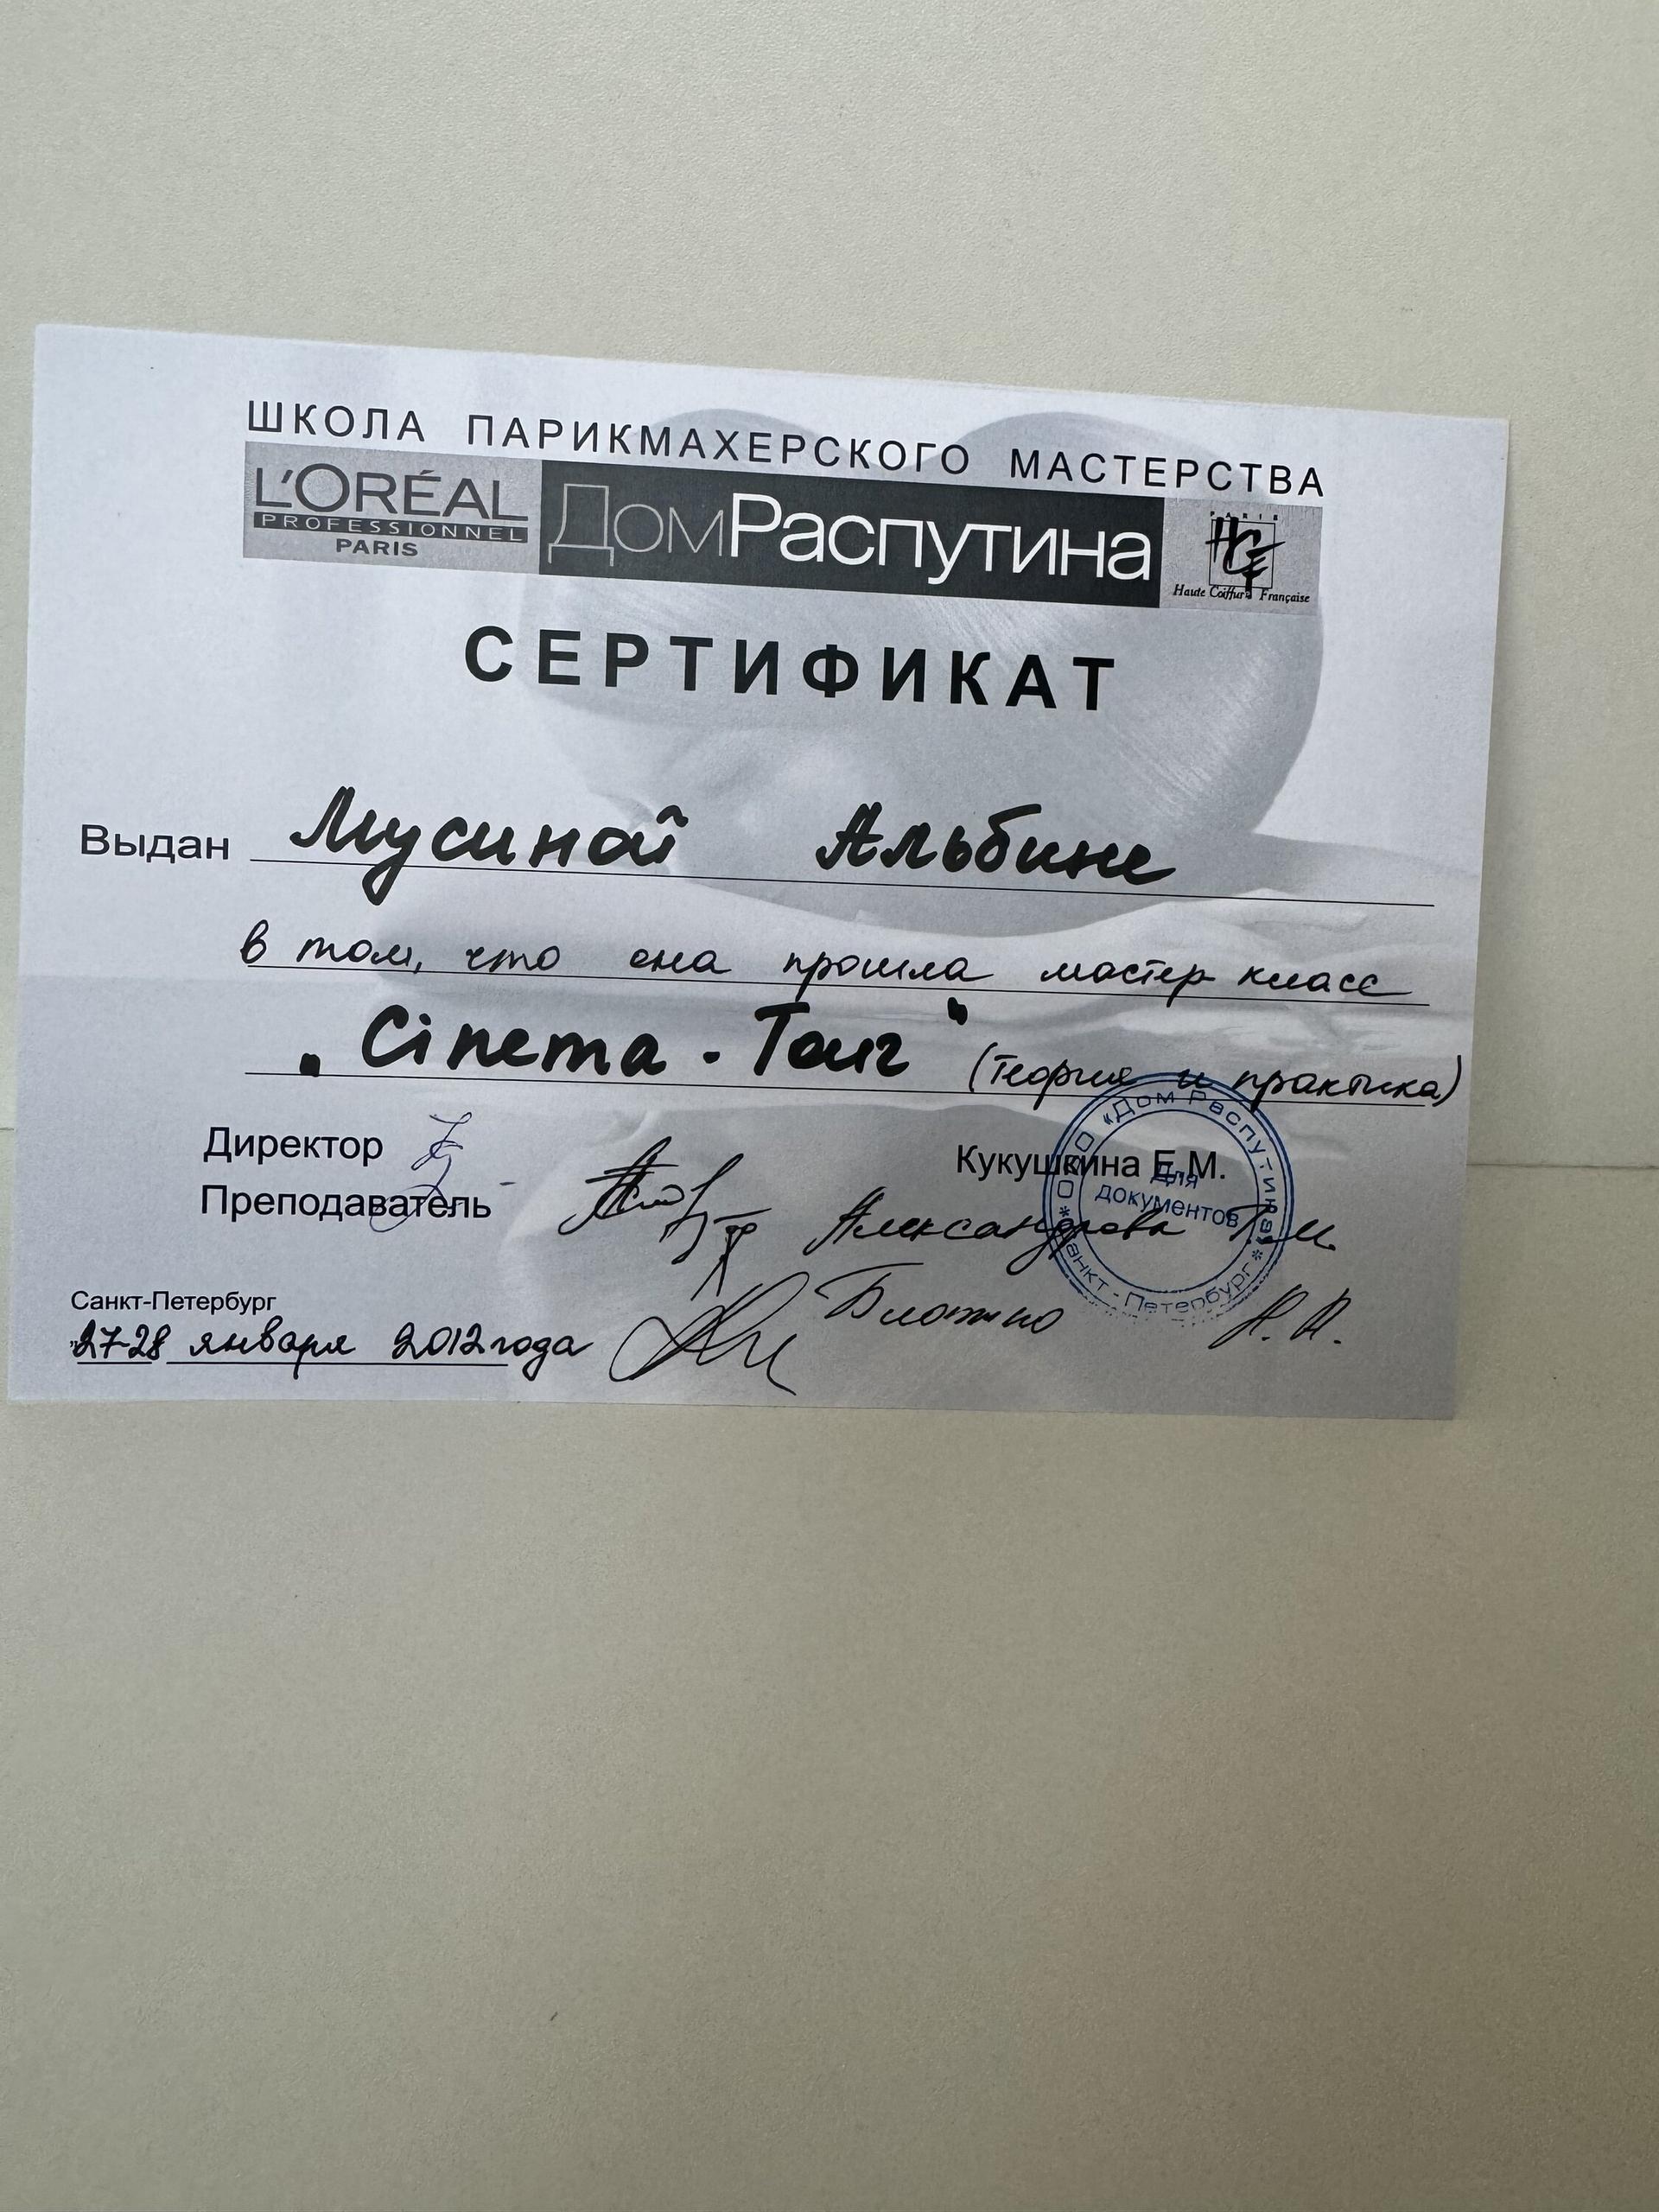 ШКОЛА ПАРИКМАХЕРСКОГО МАСТЕРСТВА
L'ORÉAL
PROFESSIONNEL
PARIS
ДомРаспутина
PARIS
HCF
Haute Coiffure Française
СЕРТИФИКАТ
Выдан Мусиной Альбине
в том, что она прошла мастер-класс
„Cinema-Tour" (теория и практика)
Директор Кукушкина Е.М.
Преподаватель Александрова Т.М.
Н.А.
ООО «Дом Распутина» * Санкт-Петербург *
Для
документов
Санкт-Петербург
"27-28 января 2012 года